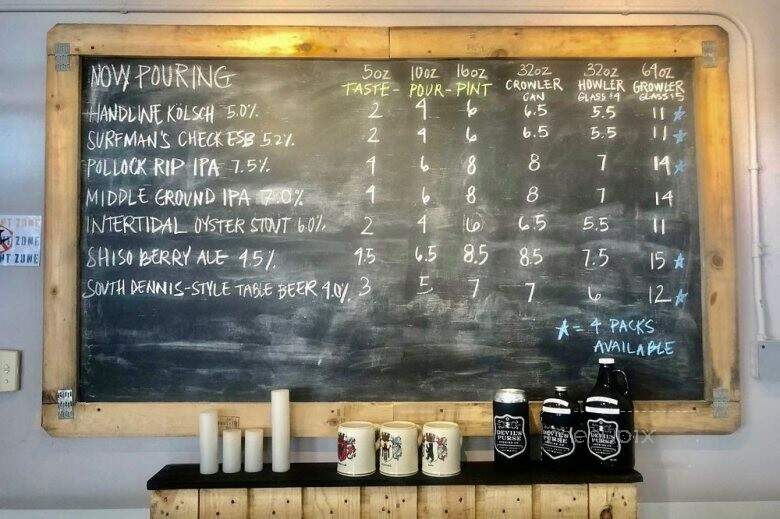 NOW POURING 5oz 10oz 16oz 32oz 32oz 64oz
TASTE - POUR - PINT CROWLER HOWLER GROWLER
CAN GLASS $4 GLASS $5
HANDLINE KÖLSCH 5.0% 2 4 6 6.5 5.5 11 ★
SURFMAN'S CHECK ESB 5.2% 2 4 6 6.5 5.5 11 ★
POLLOCK RIP IPA 7.5% 4 6 8 8 7 14 ★
MIDDLE GROUND IPA 7.0% 4 6 8 8 7 14
INTERTIDAL OYSTER STOUT 6.0% 2 4 6 6.5 5.5 11
SHISO BERRY ALE 4.5% 4.5 6.5 8.5 8.5 7.5 15 ★
SOUTH DENNIS-STYLE TABLE BEER 4.0% 3 5 7 7 6 12 ★
★ = 4 PACKS
AVAILABLE
ZONE
DEVIL'S
PURSE
DEVIL'S
PURSE
DEVIL'S
PURSE